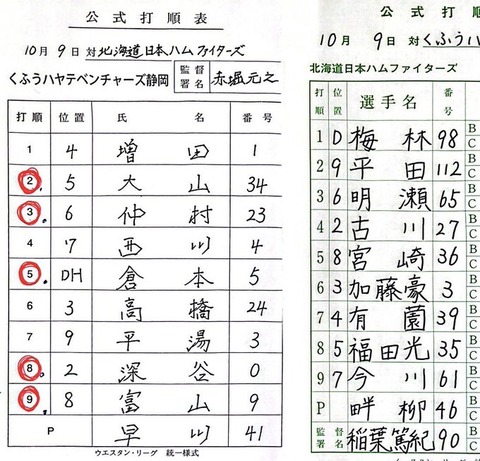 公式打順表
10月9日 対 北海道日本ハムファイターズ
くふうハヤテベンチャーズ静岡 監督署名 赤堀元之
打順 位置 氏名 番号
1 4 増田 1
2 5 大山 34
3 6 仲村 23
4 7 西川 4
5 DH 倉本 5
6 3 高橋 24
7 9 平湯 3
8 2 深谷 0
9 8 富山 9
P 早川 41
ウエスタン・リーグ 統一様式
公式打順
10月9日 対 くふうハ
北海道日本ハムファイターズ
打順 位置 選手名 番号
1 D 梅林 98 B C
2 9 平田 112 B C
3 6 明瀬 65 B C
4 2 古川 27 B C
5 8 宮崎 36 B C
6 3 加藤豪 3 B C
7 4 有薗 39 B C
8 5 福田光 35 B C
9 7 今川 61 B C
P 畔柳 46 B C
監督署名 稲葉篤紀 90 B C